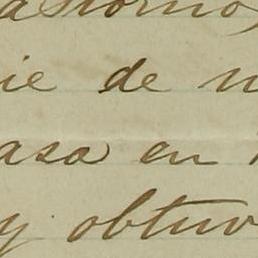 astorno
ie de n
asa en
y obtuv